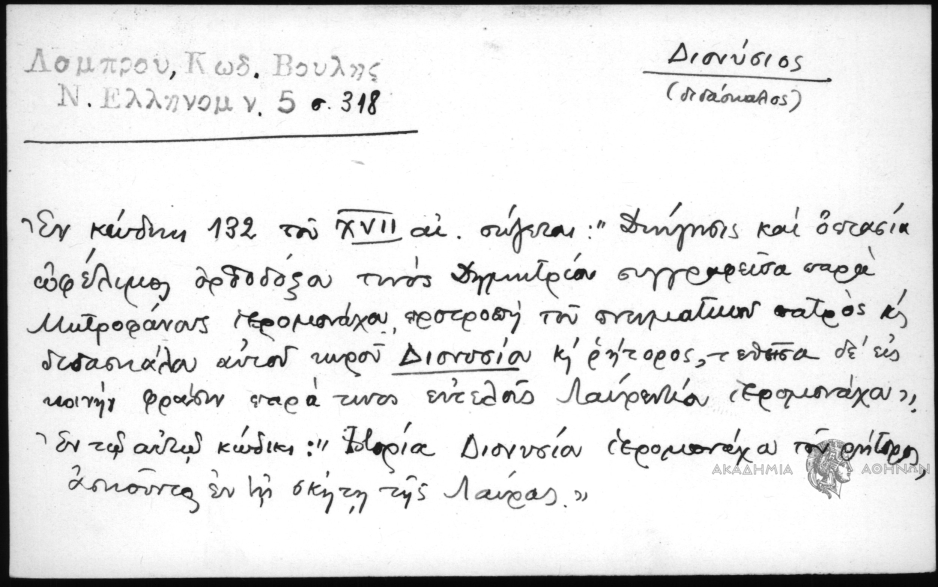 Λομπρου, Κωδ. Βουλης
Ν. Ελληνομν. 5 σ. 318
Διονύσιος
(διδάσκαλος)
Ἐν κώδικι 132 τοῦ XVII αἰ. σώζεται: "Διήγησις καὶ ὀπτασία
ὠφέλιμος ὀρθοδόξου τινὸς Δημητρίου συγγραφεῖσα παρὰ
Μητροφάνους ἱερομονάχου, προτροπῇ τοῦ πνευματικοῦ πατρὸς κὶ
διδασκάλου αὐτοῦ κυροῦ Διονυσίου κὶ ῥήτορος, τεθεῖσα δὲ εἰς
κοινὴν φράσιν παρὰ τινος εὐτελοῦς Λαυρεντίου ἱερομονάχου",
Ἐν τῷ αὐτῷ κώδικι: "Ἱστορία Διονυσίου ἱερομονάχου τοῦ ῥήτορος,
ἀσκοῦντος ἐν τῇ σκήτῃ τῆς Λαύρας."
ΑΚΑΔΗΜΙΑ ΑΘΗΝΩΝ